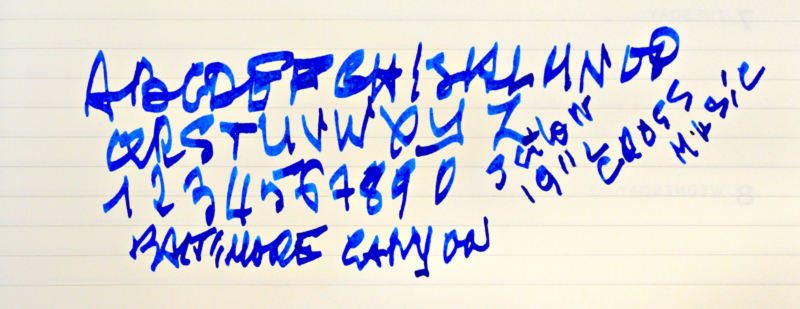 ABCDEFGHIJKLMNOP
QRSTUVWXYZ
1234567890
BALTIMORE CANYON
CROSS
MUSIC
7 TUESDAY
8 WEDNESDAY